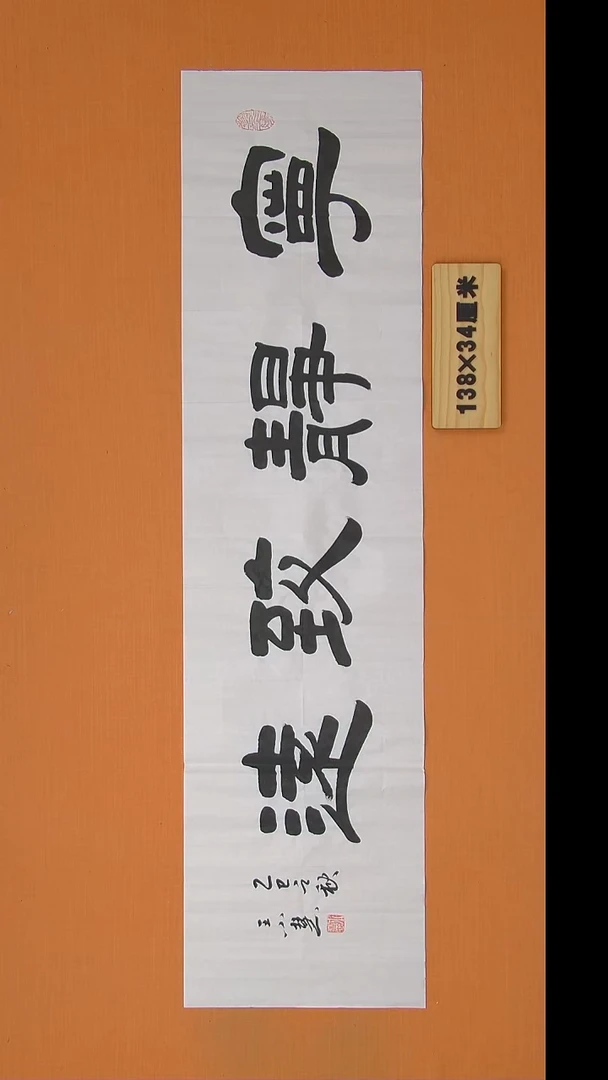 寧靜致遠
乙巳之秋
王小慧
138×34厘米